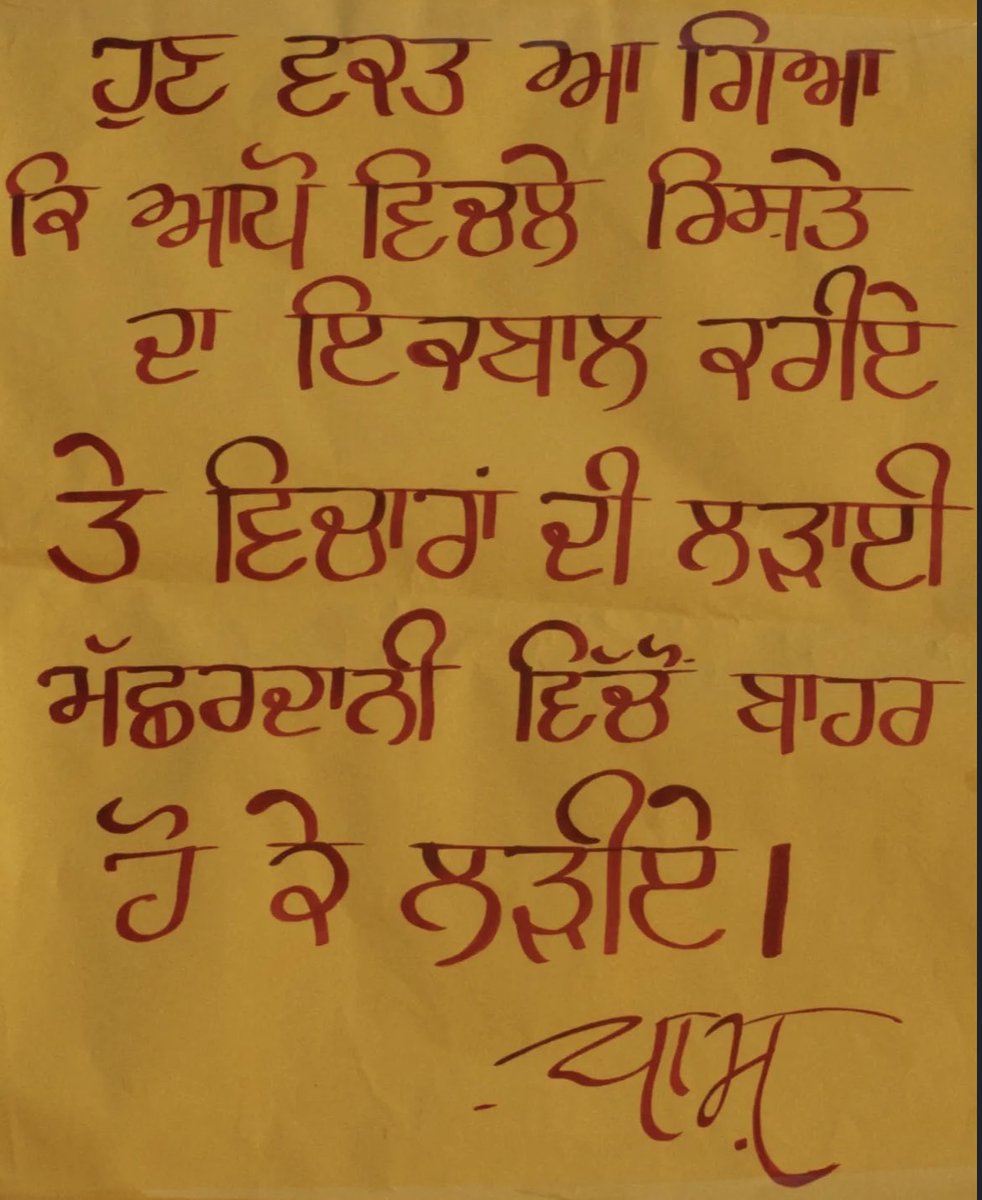 ਹੁਣ ਵਕਤ ਆ ਗਿਆ
ਕਿ ਆਪੋ ਵਿਚਲੇ ਰਿਸ਼ਤੇ
ਦਾ ਇਕਬਾਲ ਕਰੀਏ
ਤੇ ਵਿਚਾਰਾਂ ਦੀ ਲੜਾਈ
ਮੱਛਰਦਾਨੀ ਵਿੱਚੋਂ ਬਾਹਰ
ਹੋ ਕੇ ਲੜੀਏ।
- ਪਾਸ਼